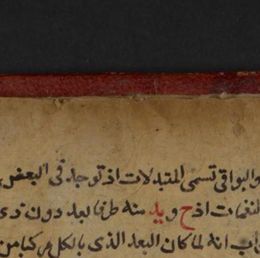 والبواقى تسمى المتبدلات اذ توجد فى البعض
النغمات اذ ح و يد منه طرفا بعد دون ذى
انه لما كان البعد الذى بالكل مركبا من